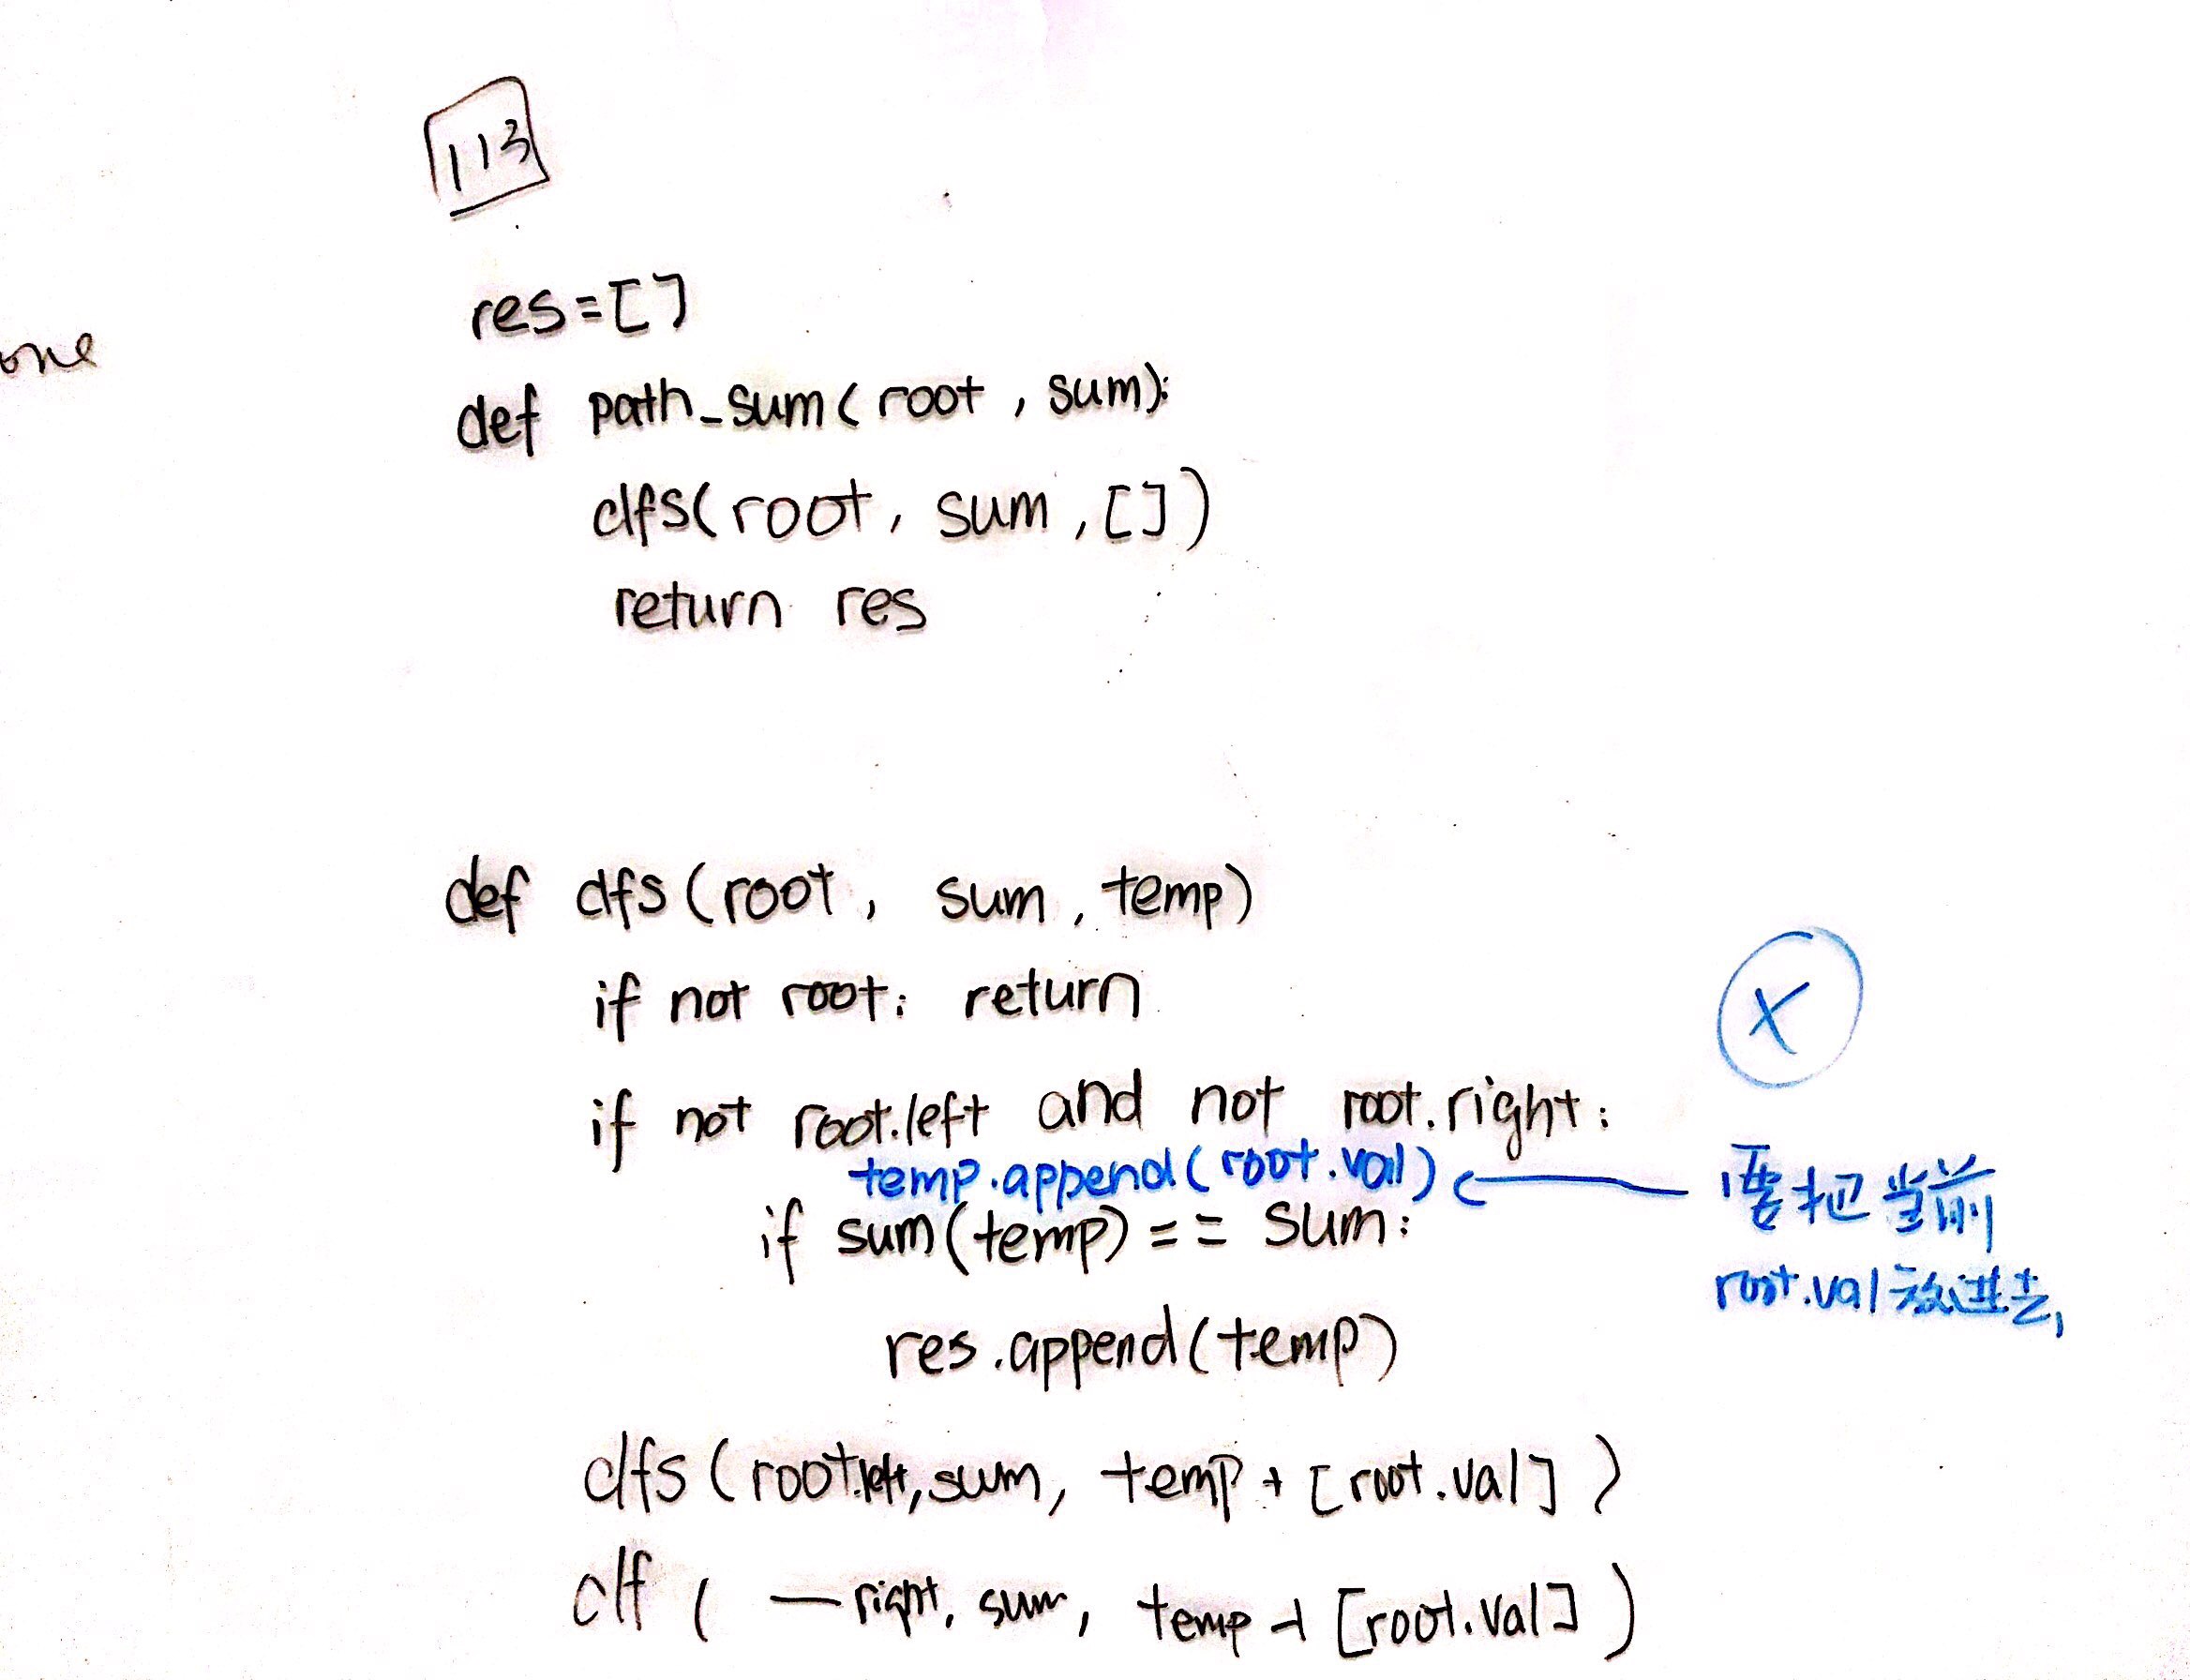 113
res=[]
one
def path_sum(root, sum):
dfs(root, sum, [])
return res
def dfs(root, sum, temp)
if not root: return
X
if not root.left and not root.right:
temp.append(root.val)
要把当前
if sum(temp) == sum:
root.val放进去,
res.append(temp)
dfs(root.left, sum, temp + [root.val])
df( —right, sum, temp + [root.val])